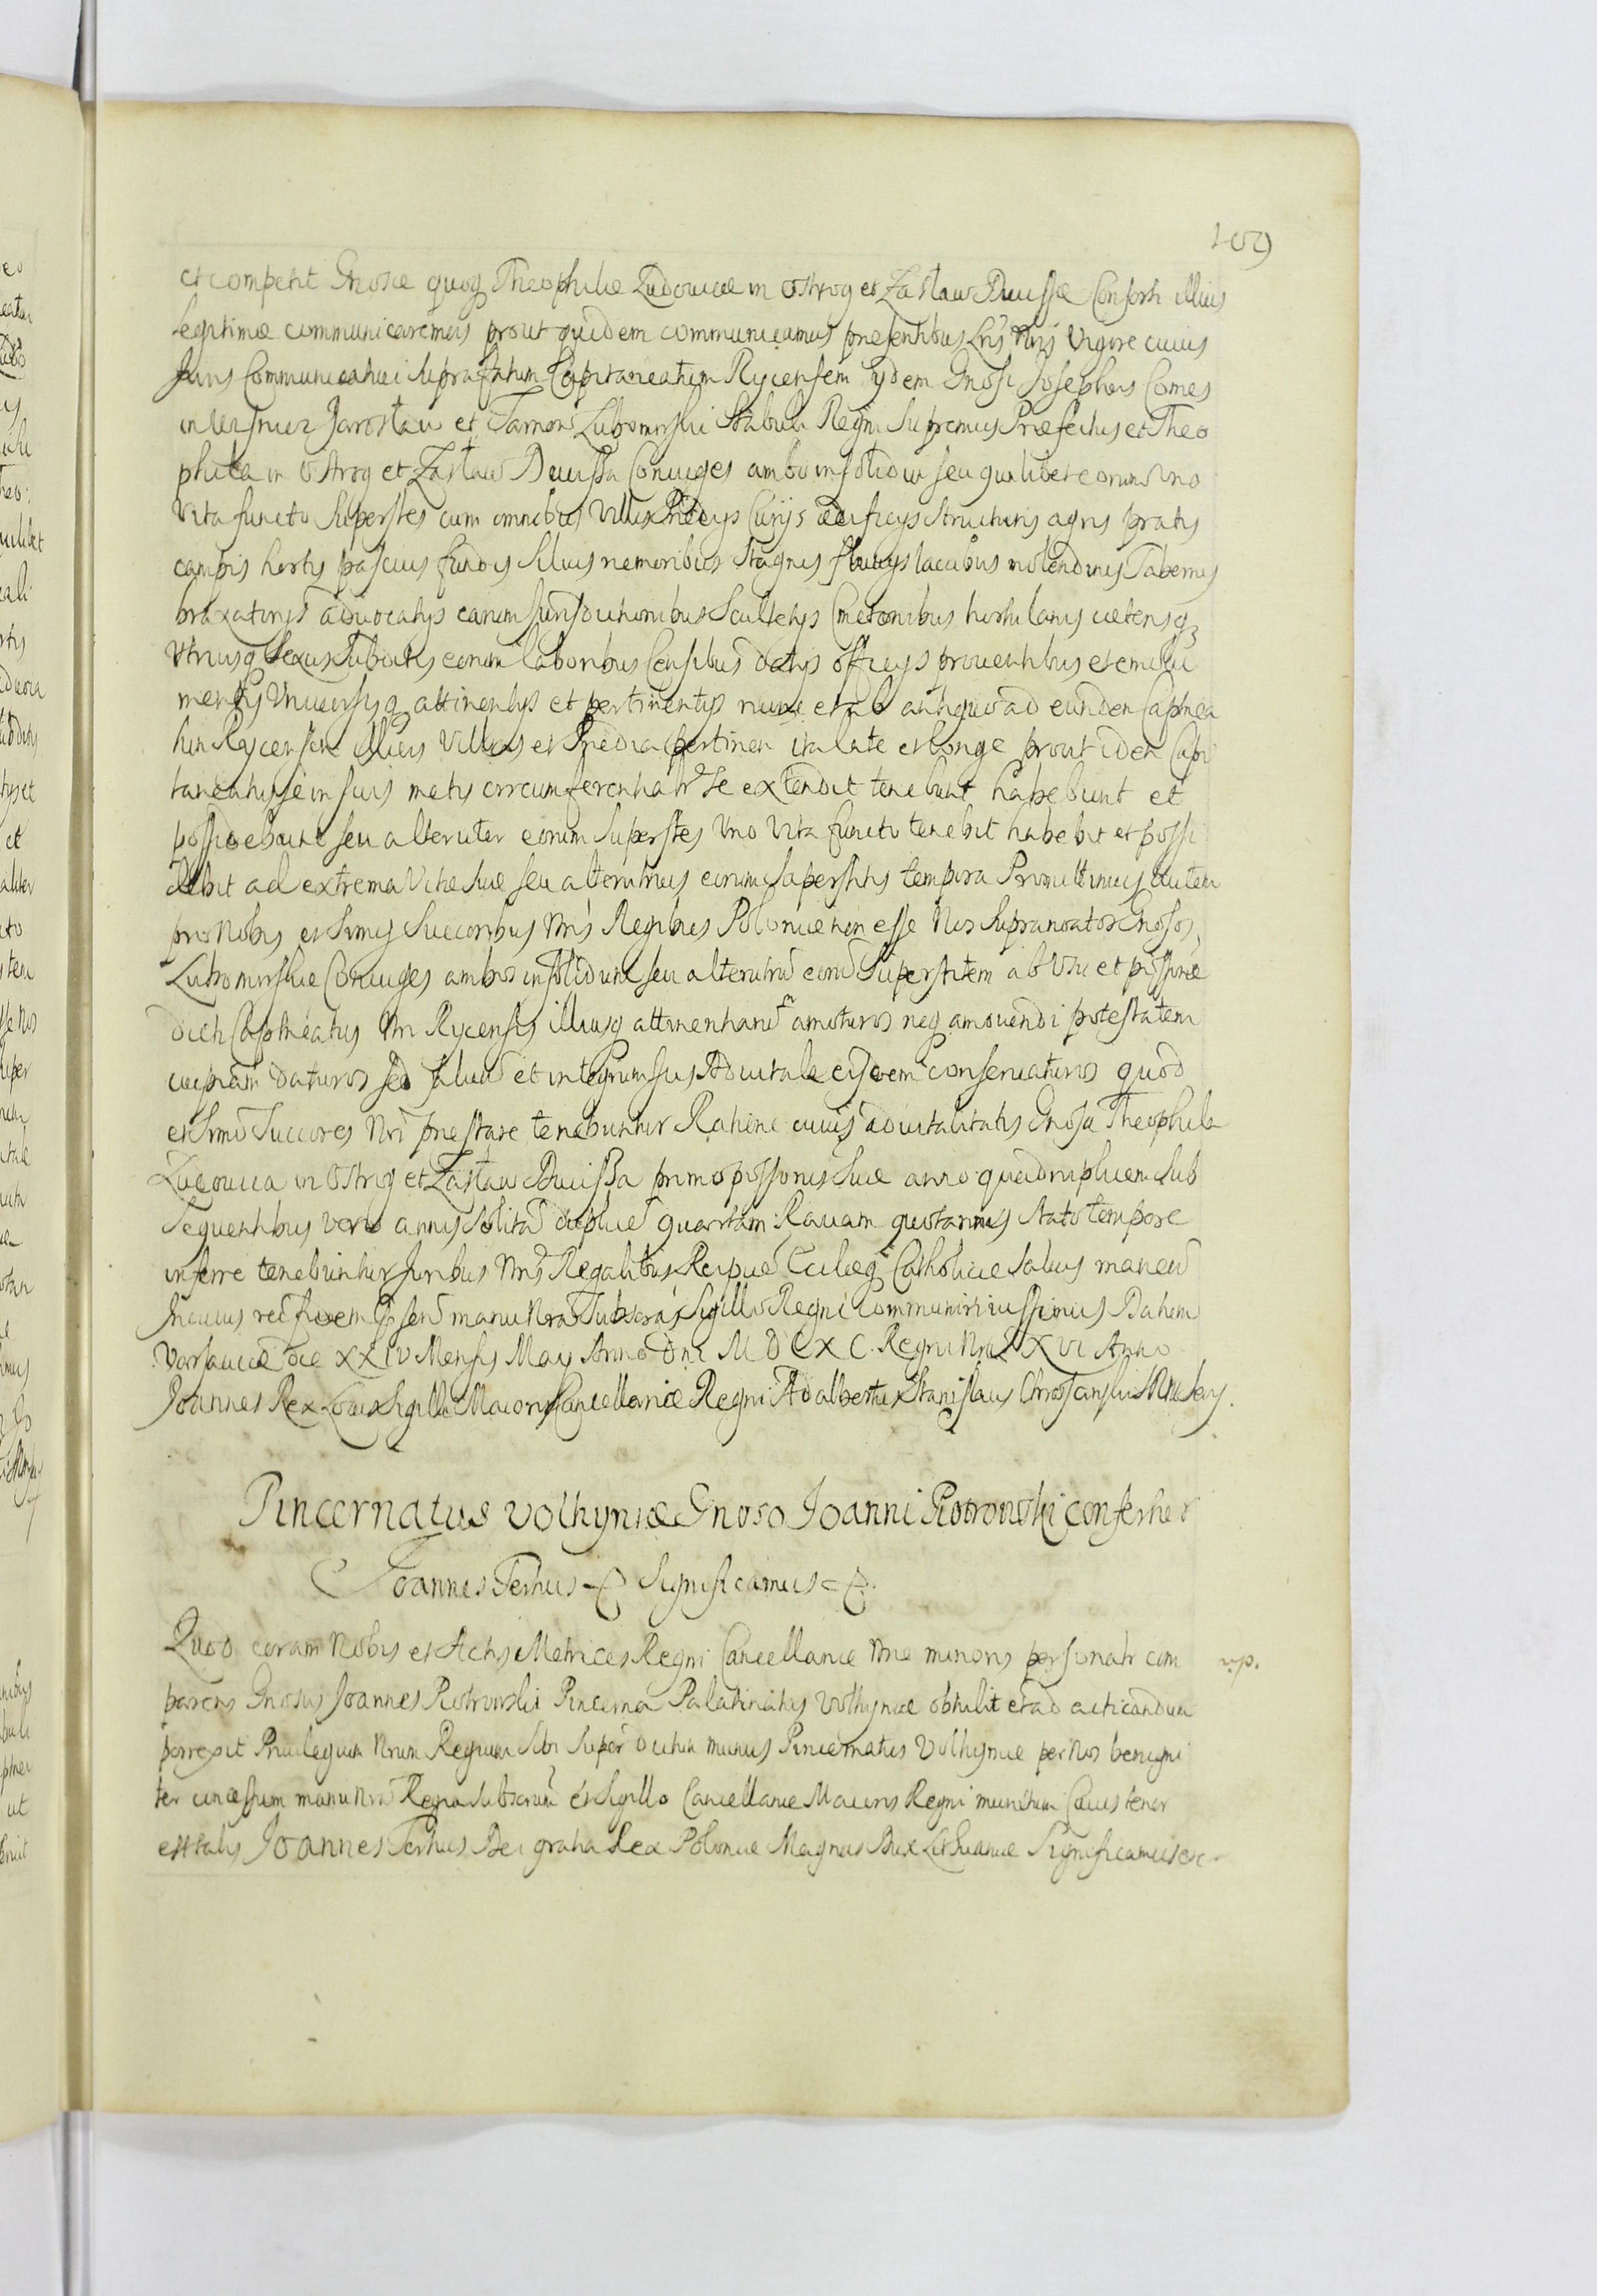 109
et competit Gnosae quoq Theophilae Ludovicae in Ostrog et Zasław Ducissae Consorti illius
legitimae communicaremus prout quidem communicamus praesentibus Lris Nris Vigore cuius
Juris Communicativi supra fatum Capitaneatum Rycensem ijdem Gnosi Josephus Comes
in Wisnicz Jarosław et Tarnow Lubomirski Stabuli Regni Supremus Praefectus et Theo
phila in Ostrog et Zasław Ducissa Coniuges ambo insolidum seu quilibet eorum uno
Vita functo Superstes cum omnibus Villis Praedijs Curijs aedificijs structuris agris pratis
campis hortis pascuis fundis silvis nemoribus stagnis fluvijs lacubus molendinis Tabernis
braxatorijs advocatijs earum Jurisdictionibus Scultetijs Cmetonibus hortulanis caeterisq
Utriusq Sexus Subditis eorum laboribus Censibus datijs officijs proventibus et emolu
mentis Universisq attinentijs et pertinentijs nunc et ab antiquo ad eundem Captnea
tum Rycensem illius Villas et Praedia pertinen ita late et longe prout idem Capi
taneatus se in suis metis circumferentialr se extendit tenebunt habebunt et
possidebunt seu alteruter eorum Superstes Uno Vita functo tenebit habebit et possi
debit ad extrema Vitae suae seu alterutrius eorum Superstitis tempora Promittimus autem
pro Nobis et Srmis Succoribus Nris Regibus Poloniae non esse Nos Supranoatos Gnosos
Lubomirskie Coniuges ambos insolidum seu alterutrū eorū Superstitem ab Usu et possone
dicti Captneatus Nri Rycensis illiusq attinentiarū amoturos neq amovendi potestatem
cuipiam daturos sed salvū et integrum Jus Advitale eisdem conservaturos quod
et Srmi Succores Nri praestare tenebuntur Ratione cuius advitalitatis Gnosa Theophila
Ludovica in Ostrog et Zasław Ducissa primo possonis suae anno quadruplicem sub
sequentibus vero annis solitā duplicē quartam Ravam quotannis stato tempore
inferre tenebuntur Juribus Nris Regalibus Reipucae Ecclaeq Catholicae salvis manen
In cuius rei fidem psen manu Nra Subscras Sigillo Regni communiri iussimus Datum
Varsaviae die XXIV Mensis May Anno Dni M D C X C. Regni Nri XVI Anno
Joannes Rex Locus Sigilli Maioris Cancellariae Regni Adalbertus Stanislaus Chrosanski SRM Secrs.
Pincernatus Volhyniae Gnoso Joanni Piotrowski confertur
Joannes Tertius Significamus
Quod coram Nobis et Actis Metrices Regni Cancellariae Nrae minoris personalr com
parens Gnosus Joannes Piotrowski Pincerna Palatinatus Volhyniae obtulit et ad acticandum
porrexit Privilegium Nrum Regium sibi super dictum munus Pincernatus Volhyniae per Nos benigni
ter concessum manu Nra Regia Subscrum et Sigillo Cancellariae Maioris Regni munitum Cuius tenor
est talis Joannes Tertius Dei gratia Rex Poloniae Magnus Dux Lithuaniae Significamus etc